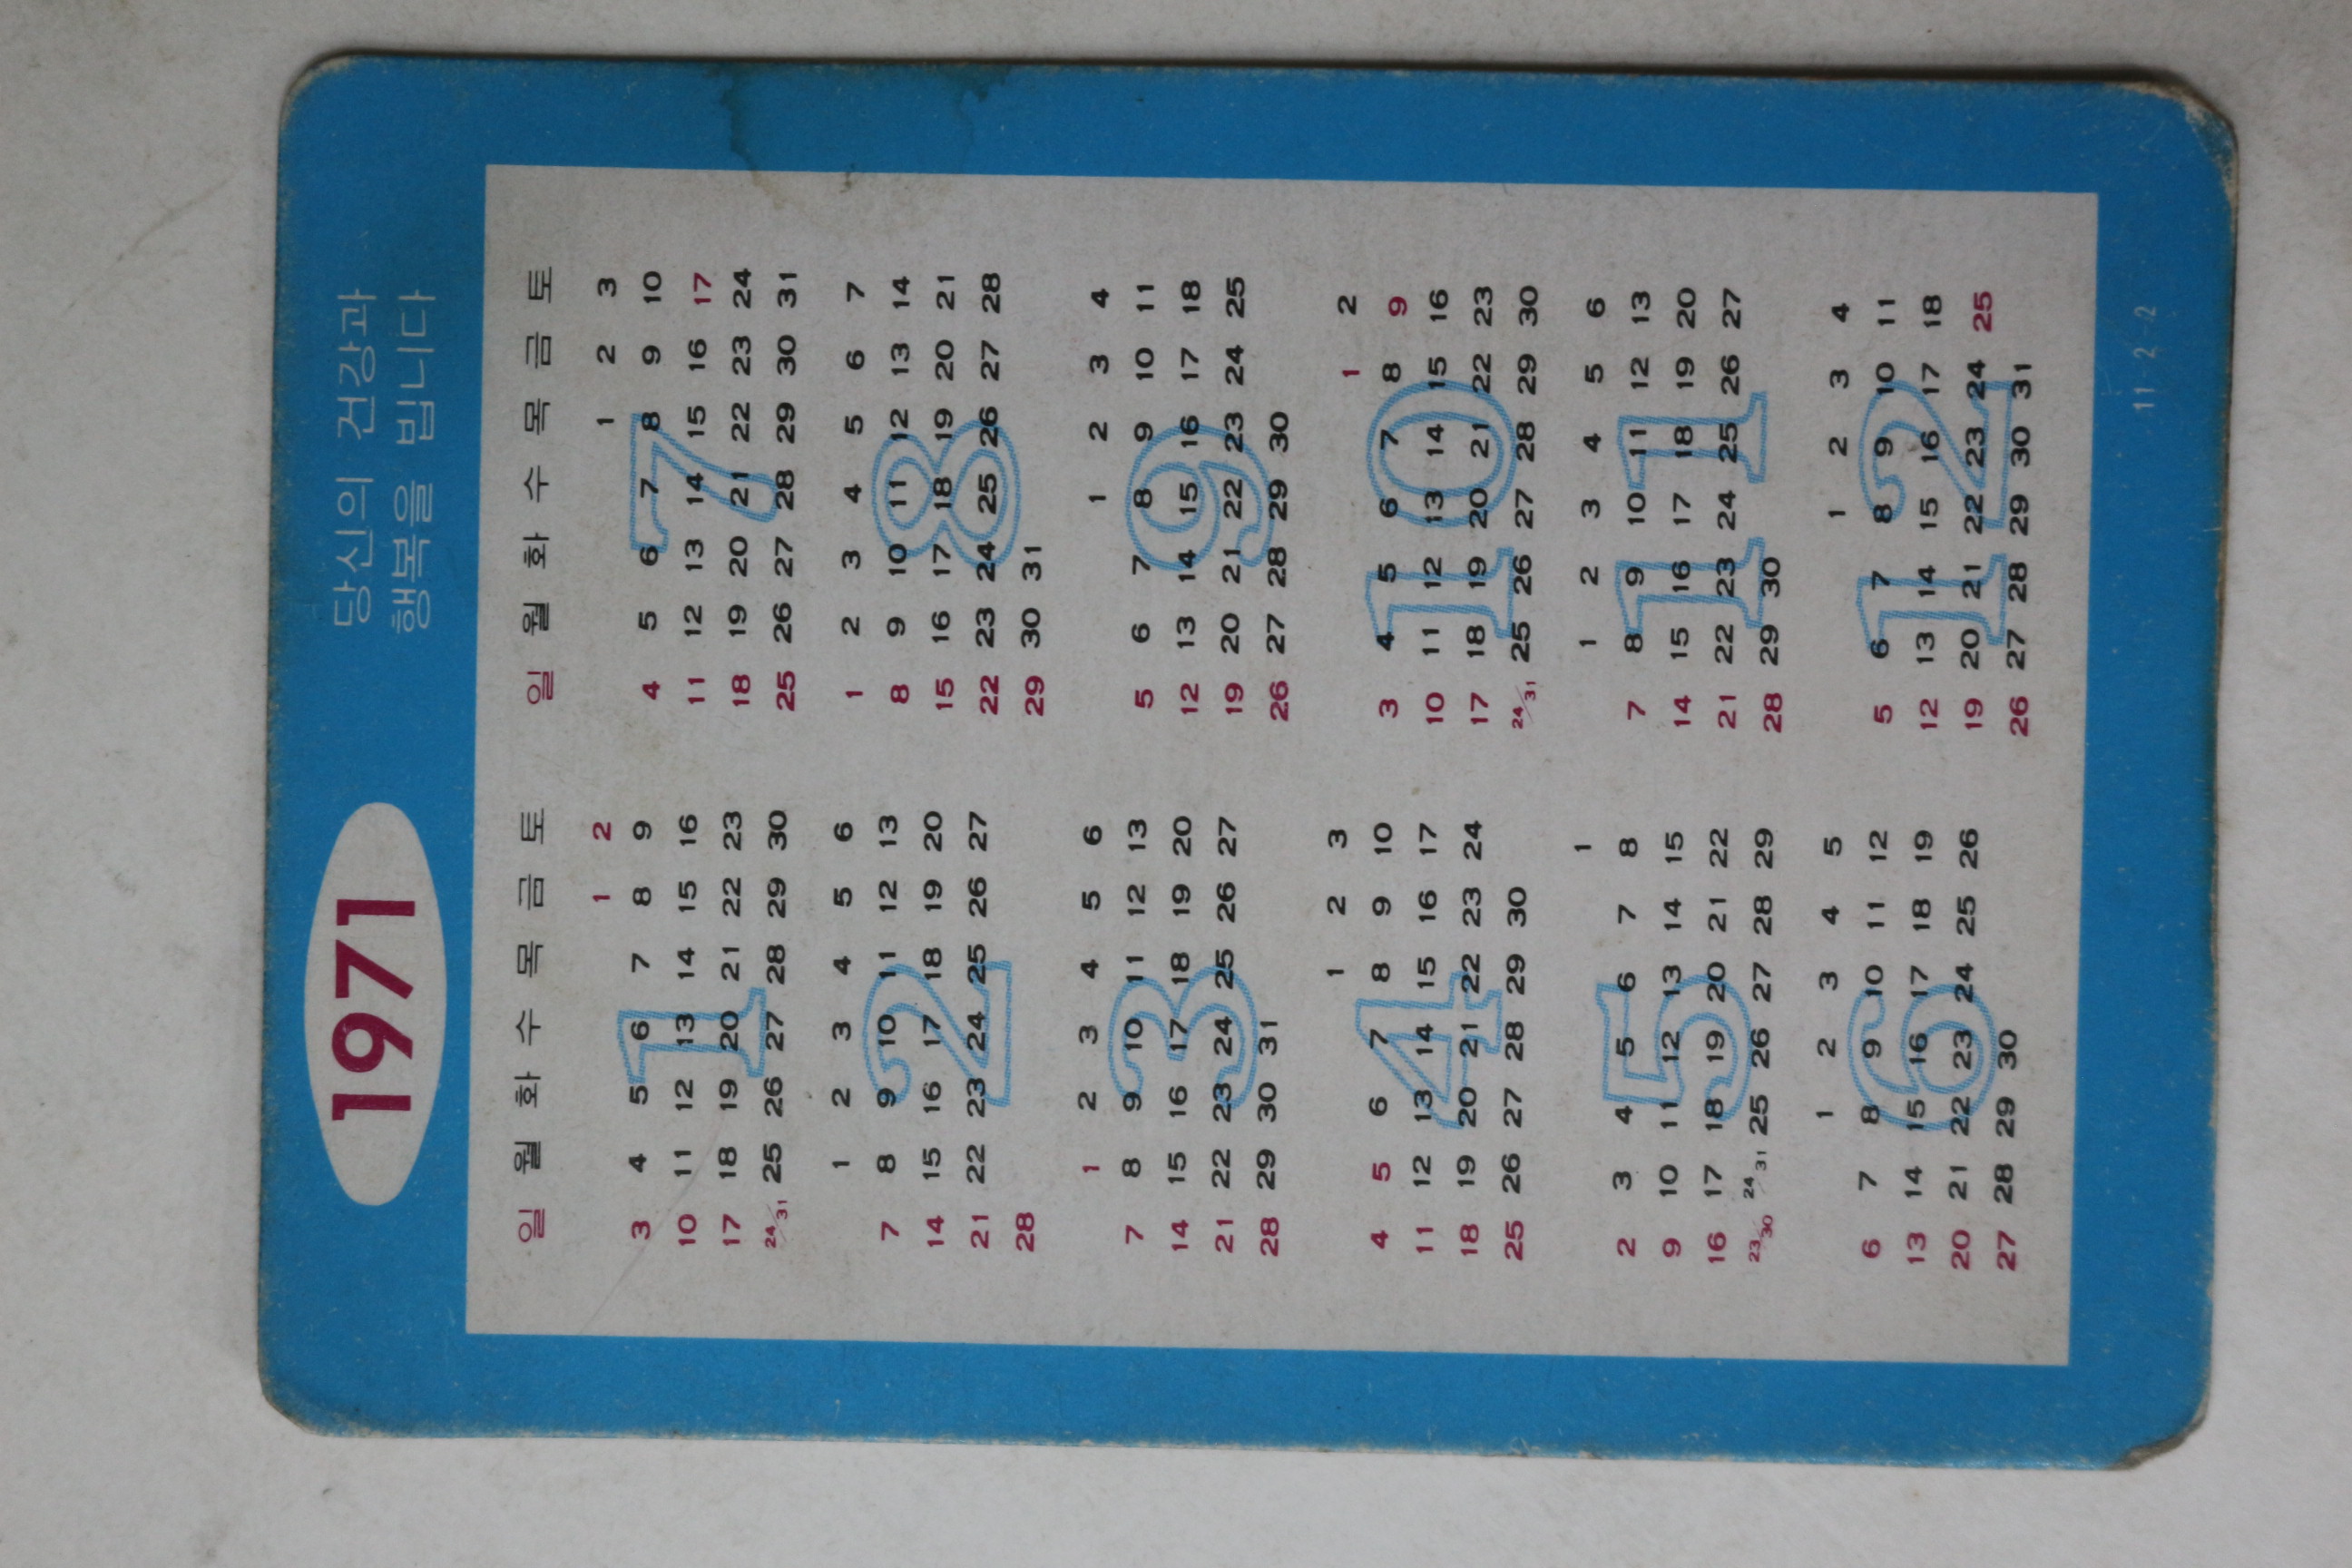 1971
당신의 건강과
행복을 빕니다
일 월 화 수 목 금 토
1
1 2
3 4 5 6 7 8 9
10 11 12 13 14 15 16
17 18 19 20 21 22 23
24/31 25 26 27 28 29 30
2
1 2 3 4 5 6
7 8 9 10 11 12 13
14 15 16 17 18 19 20
21 22 23 24 25 26 27
28
3
1 2 3 4 5 6
7 8 9 10 11 12 13
14 15 16 17 18 19 20
21 22 23 24 25 26 27
28 29 30 31
4
1 2 3
4 5 6 7 8 9 10
11 12 13 14 15 16 17
18 19 20 21 22 23 24
25 26 27 28 29 30
5
1
2 3 4 5 6 7 8
9 10 11 12 13 14 15
16 17 18 19 20 21 22
23/30 24/31 25 26 27 28 29
6
1 2 3 4 5
6 7 8 9 10 11 12
13 14 15 16 17 18 19
20 21 22 23 24 25 26
27 28 29 30
일 월 화 수 목 금 토
7
1 2 3
4 5 6 7 8 9 10
11 12 13 14 15 16 17
18 19 20 21 22 23 24
25 26 27 28 29 30 31
8
1 2 3 4 5 6 7
8 9 10 11 12 13 14
15 16 17 18 19 20 21
22 23 24 25 26 27 28
29 30 31
9
1 2 3 4
5 6 7 8 9 10 11
12 13 14 15 16 17 18
19 20 21 22 23 24 25
26 27 28 29 30
10
1 2
3 4 5 6 7 8 9
10 11 12 13 14 15 16
17 18 19 20 21 22 23
24/31 25 26 27 28 29 30
11
1 2 3 4 5 6
7 8 9 10 11 12 13
14 15 16 17 18 19 20
21 22 23 24 25 26 27
28 29 30
12
1 2 3 4
5 6 7 8 9 10 11
12 13 14 15 16 17 18
19 20 21 22 23 24 25
26 27 28 29 30 31
11-2-2